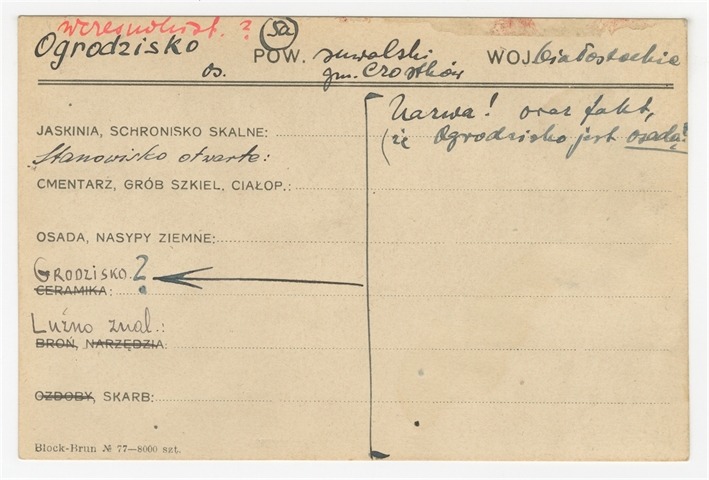 wczesnohist. ? 5a
Ogrodzisko
os.
POW. suwalski WOJ. białostockie
gm. Czostków
Nazwa! oraz fakt,
(iż Ogrodzisko jest osadą!
JASKINIA, SCHRONISKO SKALNE:
Stanowisko otwarte:
CMENTARZ, GRÓB SZKIEL. CIAŁOP.:
OSADA, NASYPY ZIEMNE:
GRODZISKO ?
CERAMIKA:
Luźno znal.:
BROŃ, NARZĘDZIA:
OZDOBY, SKARB:
Block-Brun № 77—8000 szt.